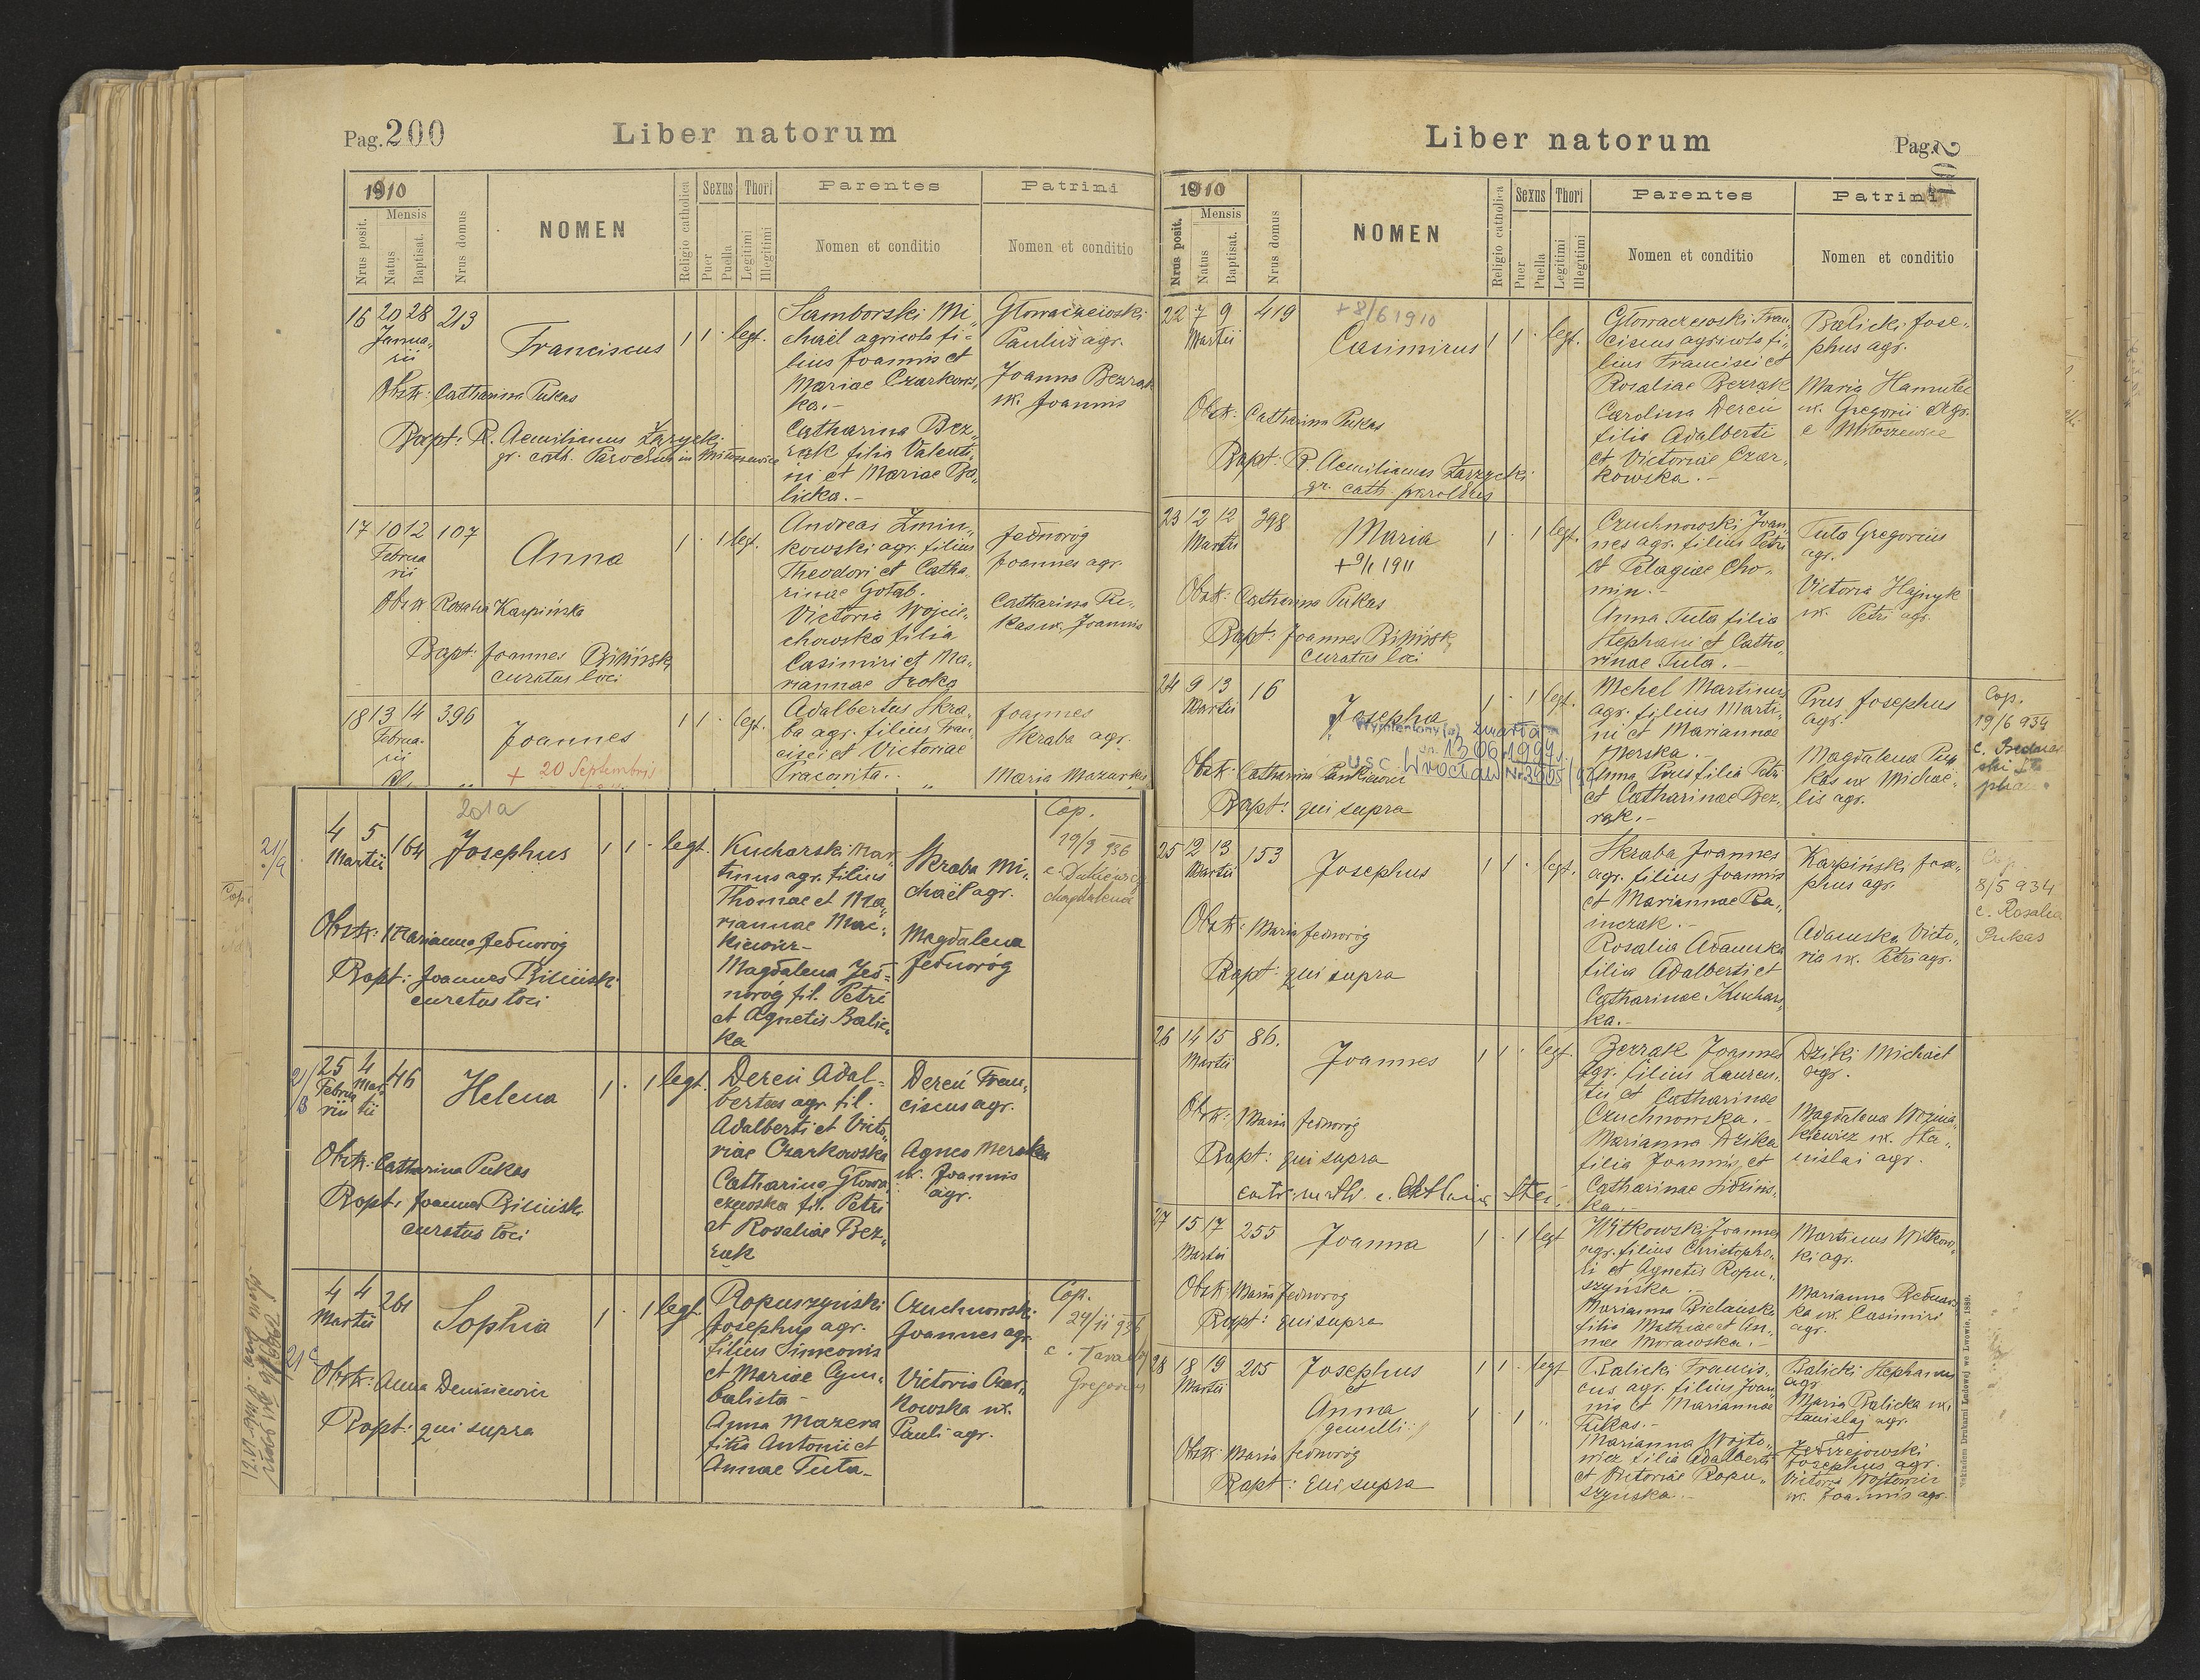 Pag. 200
Liber natorum
1910
Nrus posit.
Mensis
Natus
Baptisat.
Nrus domus
NOMEN
Religio catholica
Sexus
Puer
Puella
Thori
Legitimi
Illegitimi
Parentes
Nomen et conditio
Patrini
Nomen et conditio
16 20 28 213
Janua„
rii
Franciscus
1 1 · legt.
Samborski Mi„
chaël agricola fi=
lius Joannis et
Mariae Czarkows„
ka.-
Catharina Bez„
rak filia Valenti„
ni et Mariae Ba„
licka.-
Głowaczewski
Paulus agr.
Joanna Bezrak
ux. Joannis
Obstr: Catharina Pukas
Bapt: R. Aemilianus Zarzycki
gr. cath. Parochus in Miłoszewice
17 10 12 107
Februa
rii
Anna
1 · 1 legt.
Andreas Żmin„
kowski agr. filius
Theodori et Catha„
rinae Gołąb.
Victoria Wojcie„
chowska filia
Casimiri et Ma„
riannae Sroka
Jednoróg
Joannes agr.
Catharina Pu„
kas ux. Joannis
Obstr. Rosalia Karpińska
Bapt: Joannes Biliński
curatus loci
18 13 14 396
Februa.
rii
Joannes
+ 20 Septembris
1 1 · legt.
Adalbertus Skra„
ba agr. filius Fran„
cisci et Victoriae
Pracowita.-
Joannes
Skraba agr.
Maria Mazurkie
201a
21/a
4 5 164
Martii
Josephus
1 1 · legt.
Kucharski Mar„
tinus agr. filius
Thomae et Ma„
riannae Mac„
kiewicz-
Magdalena Jed„
noróg fil. Petri
et Agnetis Balic„
ka
Skraba Mi„
chaël agr.
Magdalena
Jednoróg
Cop.
19/9 936
Magdalena
Obstr: Marianna Jednoróg
Bapt: Joannes Biliński
curatus loci
21/B
25 4 46
Februa Mar„
rii tii
Helena
1 · 1 legt.
Dereń Adal=
bertus agr. fil.
Adalberti et Victo„
riae Czarkowska
Catharina Głowa„
czewska fil. Petri
et Rosaliae Bez„
rak
Dereń Fran„
ciscus agr.
Agnes Merska
ux. Joannis
agr.
Obstr: Catharina Pukas
Bapt: Joannes Biliński
curatus loci
21c
4 4 261
Martii
Sophia
1 · 1 legt.
Ropuszyński
Josephus agr.
filius Simeonis
et Mariae Cym„
balista-
Anna Mazera
filia Antonii et
Annae Tuta-
Czuchnowski
Joannes agr.
Victoria Czar„
kowska ux.
Pauli agr.
Cop.
24/11 936
Gregorius
Obstr: Anna Denisiewicz
Bapt: qui supra
Liber natorum
Pag. 201
1910
Nrus posit.
Mensis
Natus
Baptisat.
Nrus domus
NOMEN
Religio catholica
Sexus
Puer
Puella
Thori
Legitimi
Illegitimi
Parentes
Nomen et conditio
Patrini
Nomen et conditio
22 7 9 419
Martii
+ 8/6 1910
Casimirus
1 1 · legt.
Głowaczewski Fran„
ciscus agricola fi„
lius Francisci et
Rosaliae Bezrak
Carolina Dereń
filia Adalberti
et Victoriae Czar„
kowska.-
Balicki Jose„
phus agr.
Maria Hamulec
ux. Gregorii agr.
e Miłoszewice
Obstr: Catharina Pukas
Bapt: R. Aemilianus Zarzycki
gr. cath. parochus
23 12 12 398
Martii
Maria
+ 9/11 1911
1 · 1 legt.
Czuchnowski Joan„
nes agr. filius Petri
et Pelagiae Cho„
min.-
Anna Tuta filia
Stephani et Catha„
rinae Tuta.-
Tuta Gregorius
agr.
Victoria Hajnyk
ux. Petri agr.
Obstr: Catharina Pukas
Bapt: Joannes Biliński
curatus loci
24 9 13 16
Martii
Josepha
Wymieniony(a) zmarła
dn. 13.06.1994
USC Wrocław Nr
1 · 1 legt.
Mchel Martinus
agr. filius Marti„
ni et Mariannae
Merska.-
Anna Prus filia Petri
et Catharinae Bez„
rak.-
Prus Josephus
agr.
Magdalena Pu„
kas ux Michae„
lis agr.
Cop.
19/6 934
Obstr: Catharina
Bapt: qui supra
25 12 13 153
Martii
Josephus
1 1 · legt.
Skraba Joannes
agr. filius Joannis
et Mariannae Ra„
inczak.-
Rosalia Adamska
filia Adalberti et
Catharinae Kuchars„
ka.-
Karpiński Jose„
phus agr.
Adamska Victo„
ria ux. Petri agr.
Cop.
8/5 934
c. Rosalia
Pukas
Obstr: Maria Jednoróg
Bapt: qui supra
26 14 15 86.
Martii
Joannes
1 1 · legt.
Bezrak Joannes
agr. filius Lauren„
tii et Catharinae
Czuchnowska.-
Marianna Dzika
filia Joannis et
Catharinae
ka.-
Dziki Michaël
agr.
Magdalena Woźnia„
kiewicz ux. Sta„
nislai agr.
Obstr: Maria Jednoróg
Bapt: qui supra
27 15 17 255
Martii
Joanna
1 · 1 legt
Witkowski Joannes
agr. filius Christopho„
ri et Agnetis Ropu„
szyńska.-
Marianna Bielańska
filia Mathiae et An„
nae Morawska.-
Martinus Witkow„
ki agr.
Marianna Bednars„
ka ux. Casimiri
agr.
Obstr: Maria Jednoróg
Bapt: qui supra
28 18 19 205
Martii
Josephus
et
Anna
gemelli
1 1 · legt
1 · 1 „
Balicki Francis„
cus agr. filius Joan„
nis et Mariannae
Pukas.-
Marianna Wojto„
wicz filia Adalberti
et Victoriae Ropu„
szyńska.-
Balicki Stephanus
agr.
Maria Balicka ux.
Stanislai agr.
ad
Jędrzejowski
Josephus agr.
Victoria Wojtowicz
ux. Joannis agr.
Obstr: Maria Jednoróg
Bapt: qui supra
Nakładem Drukarni Ludowej we Lwowie. 1889.